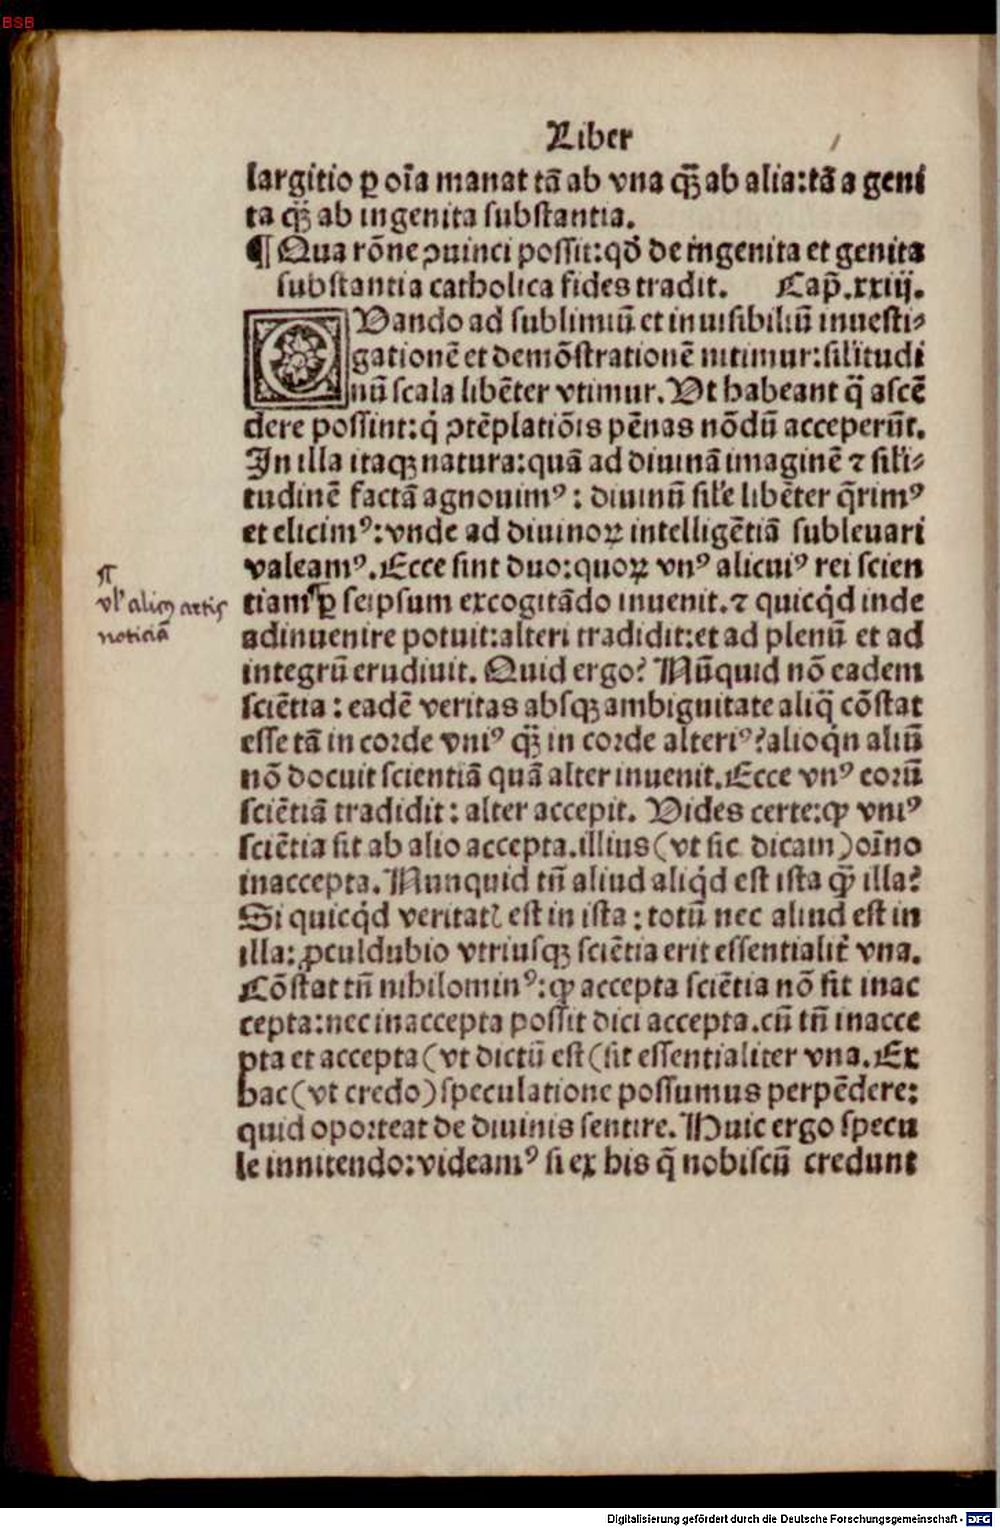 BSB
Liber
largitio ꝑ oīa manat tā ab vna qꝫ̄ ab alia: tā a geni
ta qꝫ̄ ab ingenita substantia.
¶ Qua rōne ꝯuinci possit: qđ de ingenita et genita
substantia catholica fides tradit. Cap̄. xxiij.
QVando ad sublimiū et inuisibiliū inuesti⸗
gationē et demōstrationē nitimur: silitudi
nū scala libēter vtimur. Vt habeant q̄ ascē
dere possint: q̇ ꝯtēplatiōis pēnas nōdū acceperūt.
In illa itaqꝫ natura: quā ad diuinā imaginē ⁊ sili⸗
tudinē factā agnouimꝰ: diuinū sil'e libēter q̄rimꝰ
et elicimꝰ: vnde ad diuinoꝝ intelligētiā subleuari
valeamꝰ. Ecce sint duo: quoꝝ vnꝰ alicuiꝰ rei scien
tiam ꝑ seipsum excogitādo inuenit. ⁊ quicq̇d inde
adinuenire potuit: alteri tradidit: et ad plenū et ad
integrū erudiuit. Quid ergo? Nūquid nō eadem
sciētia: eadē veritas absqꝫ ambiguitate aliq̄ cōstat
esse tā in corde vniꝰ qꝫ̄ in corde alteriꝰ? alioq̇n aliū
nō docuit scientiā quā alter inuenit. Ecce vnꝰ eorū
sciētiā tradidit: alter accepit. Vides certe: ꝙ vniꝰ
sciētia sit ab alio accepta. illius (vt sic dicam) oīno
inaccepta. Nunquid tn̄ aliud aliq̇d est ista ꝙ̄ illa?
Si quicq̇d veritatꝭ est in ista: totū nec aliud est in
illa: ꝓculdubio vtriusqꝫ sciētia erit essentialit᷑ vna.
Cōstat tn̄ nihilominꝰ: ꝙ accepta sciētia nō sit inac
cepta: nec inaccepta possit dici accepta. cū tn̄ inacce
pta et accepta (vt dictū est (sit essentialiter vna. Ex
hac (vt credo) speculatione possumus perpēdere:
quid oporteat de diuinis sentire. Huic ergo specu
le innitendo: videamꝰ si ex his q̄ nobiscū credunt
¶
vl' alicꝰ artis
noticiā
Digitalisierung gefördert durch die Deutsche Forschungsgemeinschaft - DFG